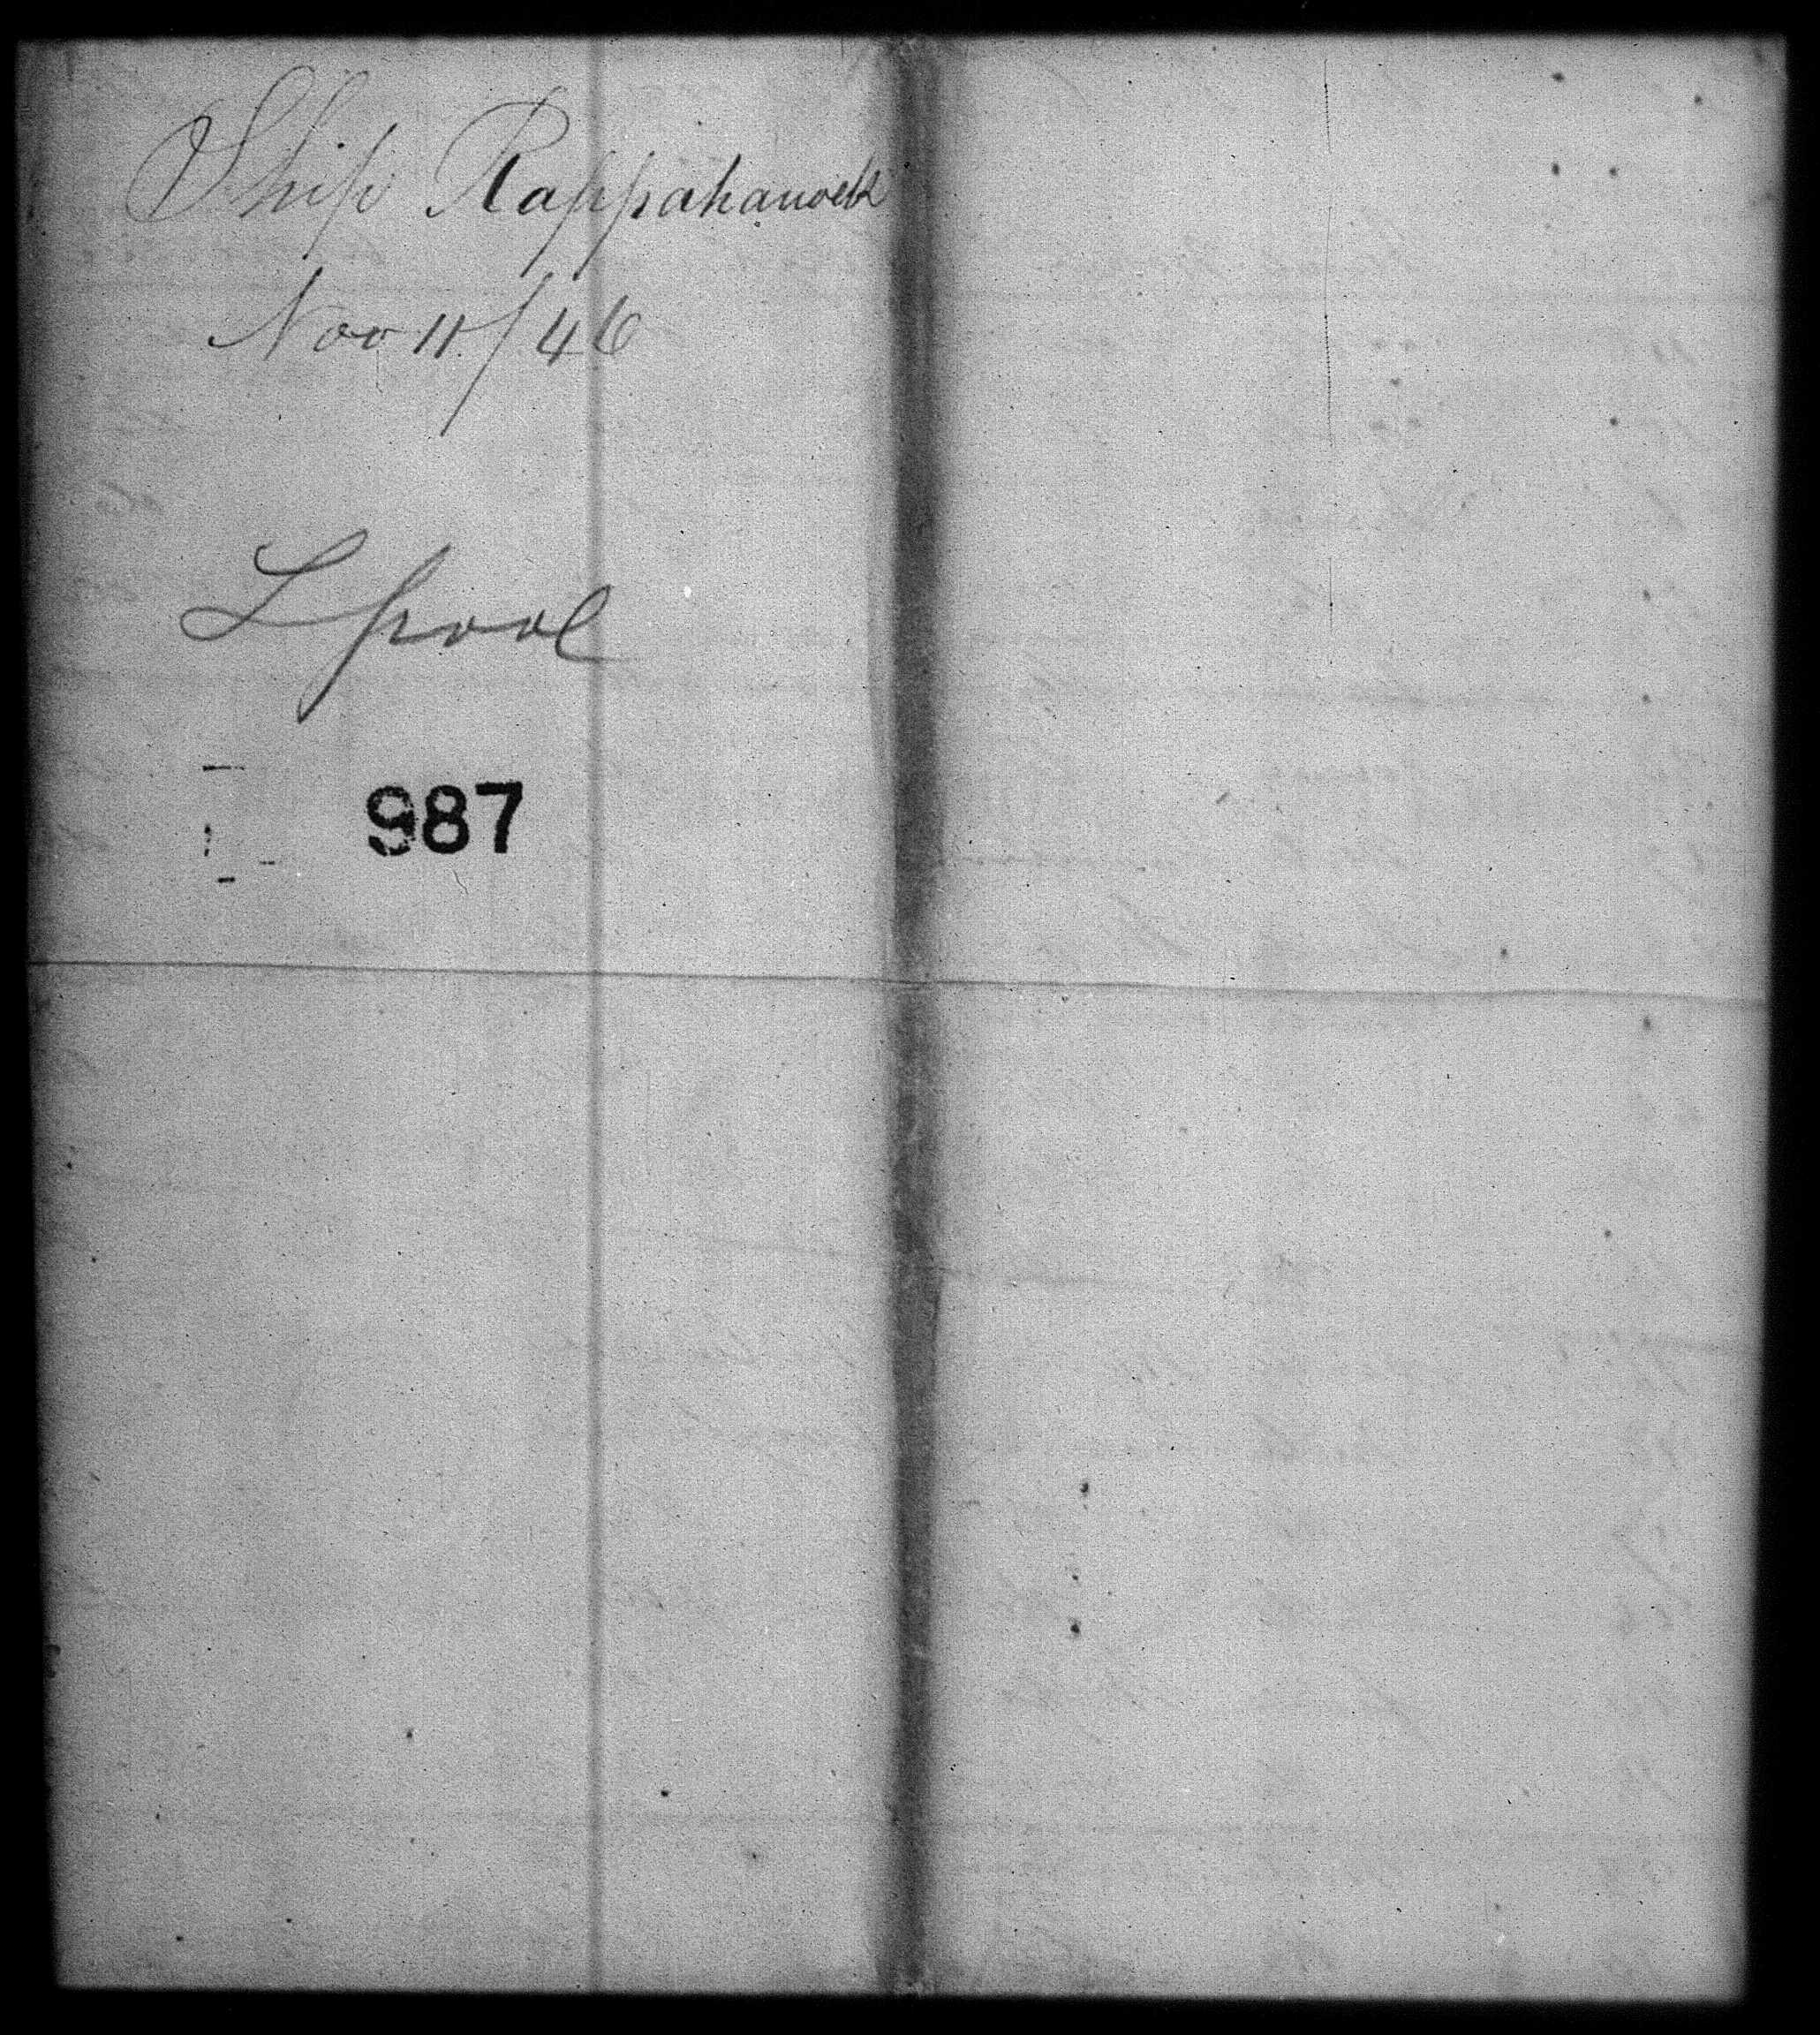 Ship Rappahanock
Nov 11/46
Lpool
987